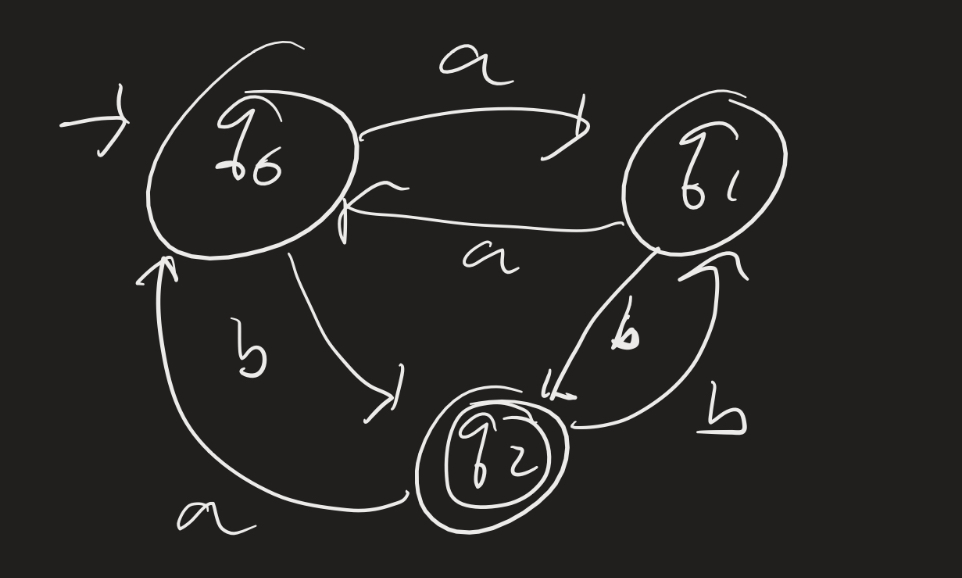 a
q0
q1
a
b
b
b
q2
a